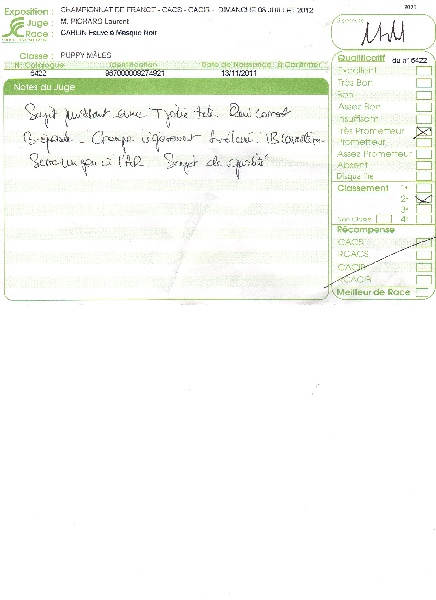 Exposition : CHAMPIONNAT DE FRANCE - CACS - CACIB - DIMANCHE 08 JUILLET 2012
Juge : M. PICHARD Laurent
Race : CARLIN Fauve à Masque Noir
Classe : PUPPY MÂLES
N° Catalogue Identification Date de Naissance
6422 967000009274921 13/11/2011
Notes du Juge
Sujet puissant avec T jolie tête.
Croupe légèrement
Serre un peu à l'AR. Sujet de qualité
Signature
Qualificatif du n° 6422
Excellent
Très Bon
Bon
Assez Bon
Insuffisant
Très Prometteur
Prometteur
Assez Prometteur
Absent
Disqualifié
Classement 1er
2e
3e
Non Classé 4e
Récompense
CACS
RCACS
CACIB
RCACIB
Meilleur de Race